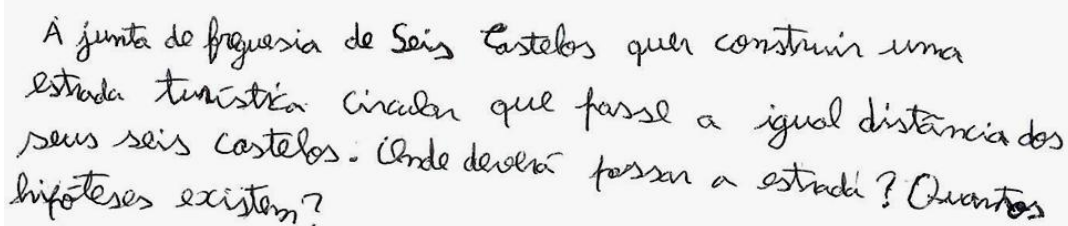 A junta de freguesia de Seis Castelos quer construir uma
estrada turística circular que passe a igual distância dos
seus seis castelos. Onde deverá passar a estrada? Quantas
hipóteses existem?